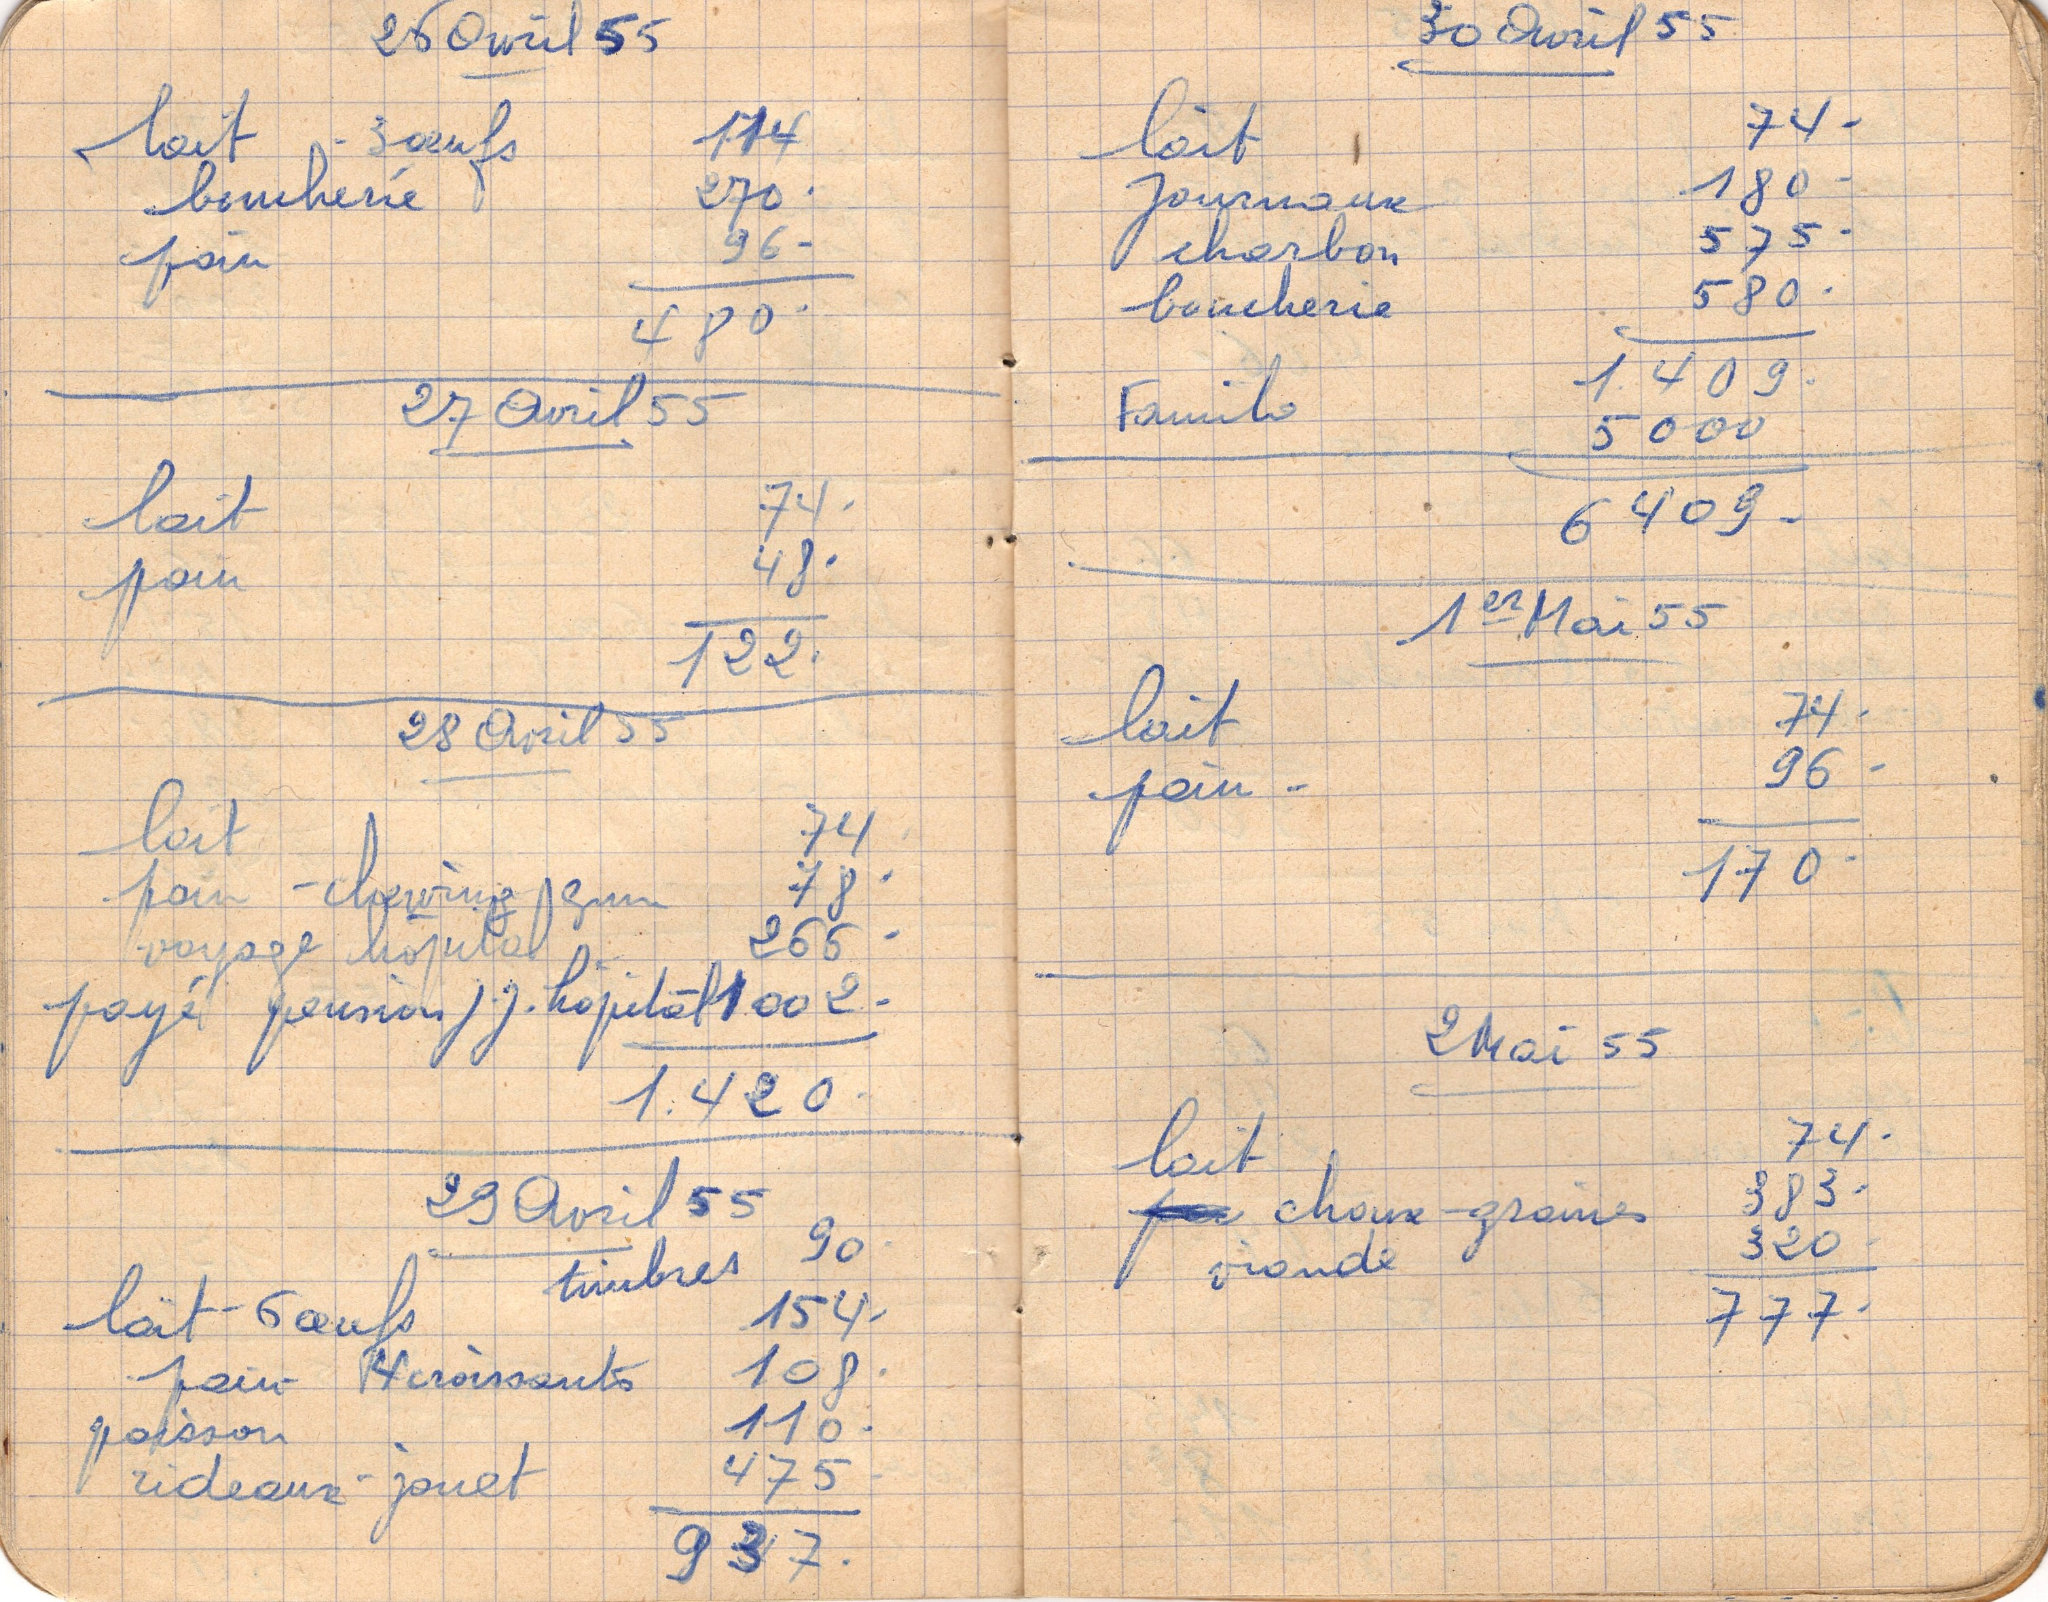 26 Avril 55
lait - 3 œufs 114
boucherie 270.
pain 96-
480.
27 Avril 55
lait 74.
pain 48.
122.
28 Avril 55
lait 74
pain - chewing gum 78.
voyage hôpital 266-
payé pension J.J. hôpital 1002-
1.420.
29 Avril 55
timbres 90
lait - 6 œufs 154-
pain 4 croissants 108.
poisson 110.
rideaux - jouet 475-
937.
30 Avril 55
lait 74-
journaux 180-
charbon 575-
boucherie 580.
1.409.
5000
6409-
1er Mai 55
lait 74-
pain - 96-
170-
2 Mai 55
lait 74.
choux - graines 383.
viande 320.
777.